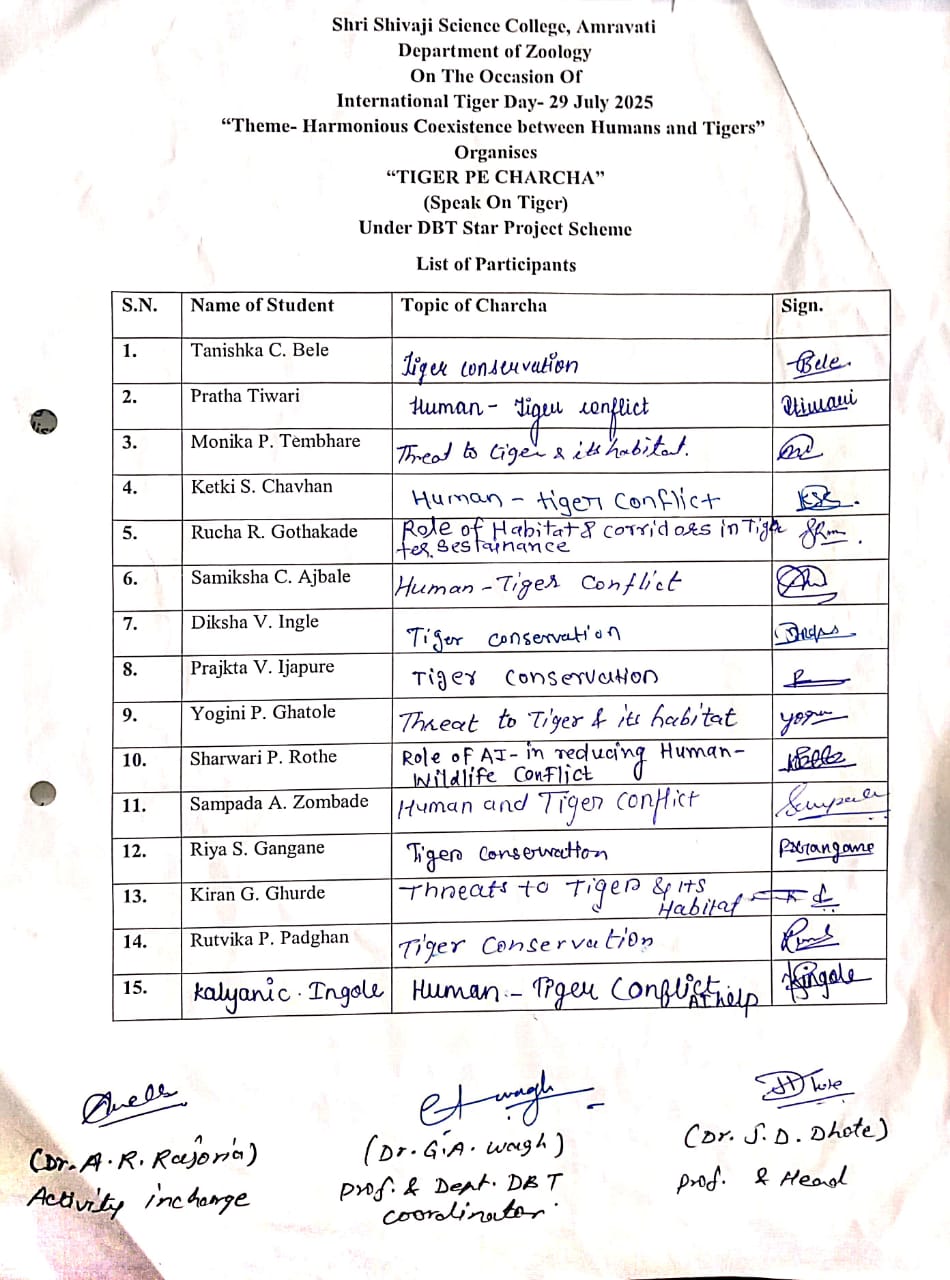 Shri Shivaji Science College, Amravati
Department of Zoology
On The Occasion Of
International Tiger Day- 29 July 2025
“Theme- Harmonious Coexistence between Humans and Tigers”
Organises
“TIGER PE CHARCHA”
(Speak On Tiger)
Under DBT Star Project Scheme
List of Participants
S.N. Name of Student Topic of Charcha Sign.
1. Tanishka C. Bele Tiger conservation Bele.
2. Pratha Tiwari Human - Tiger conflict
3. Monika P. Tembhare Threat to tiger & its habitat.
4. Ketki S. Chavhan Human - tiger conflict
5. Rucha R. Gothakade Role of Habitat & corridors in Tige
ter sestainance
6. Samiksha C. Ajbale Human - Tiger Conflict
7. Diksha V. Ingle Tiger conservation
8. Prajkta V. Ijapure Tiger Conservation
9. Yogini P. Ghatole Threat to Tiger & its habitat
10. Sharwari P. Rothe Role of AI- in reducing Human-
Wildlife Conflict
11. Sampada A. Zombade Human and Tiger Conflict
12. Riya S. Gangane Tiger Conservation
13. Kiran G. Ghurde Threats to Tiger & its
Habitat
14. Rutvika P. Padghan Tiger Conservation
15. Kalyanic. Ingole Human - Tiger Conflict Kingole
AI help
(Dr. A. R. Rajoria) (Dr. G.A. Wagh) (Dr. J. D. Dhote)
Activity incharge Prof. & Dept. DBT Prof. & Head
coordinator